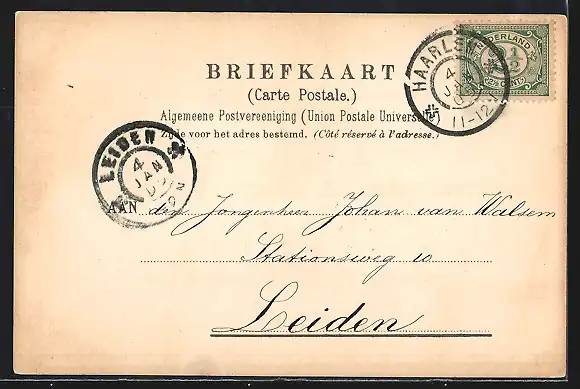 BRIEFKAART
(Carte Postale.)
Algemeene Postvereeniging (Union Postale Universelle)
Zijde voor het adres bestemd. (Côté réservé à l'adresse.)
HAARLEM
4
JAN
11-12
NEDERLAND
2½
LEIDEN
4
JAN
AAN den Jongenheer Johan van Walsem
Stationsweg 10
Leiden